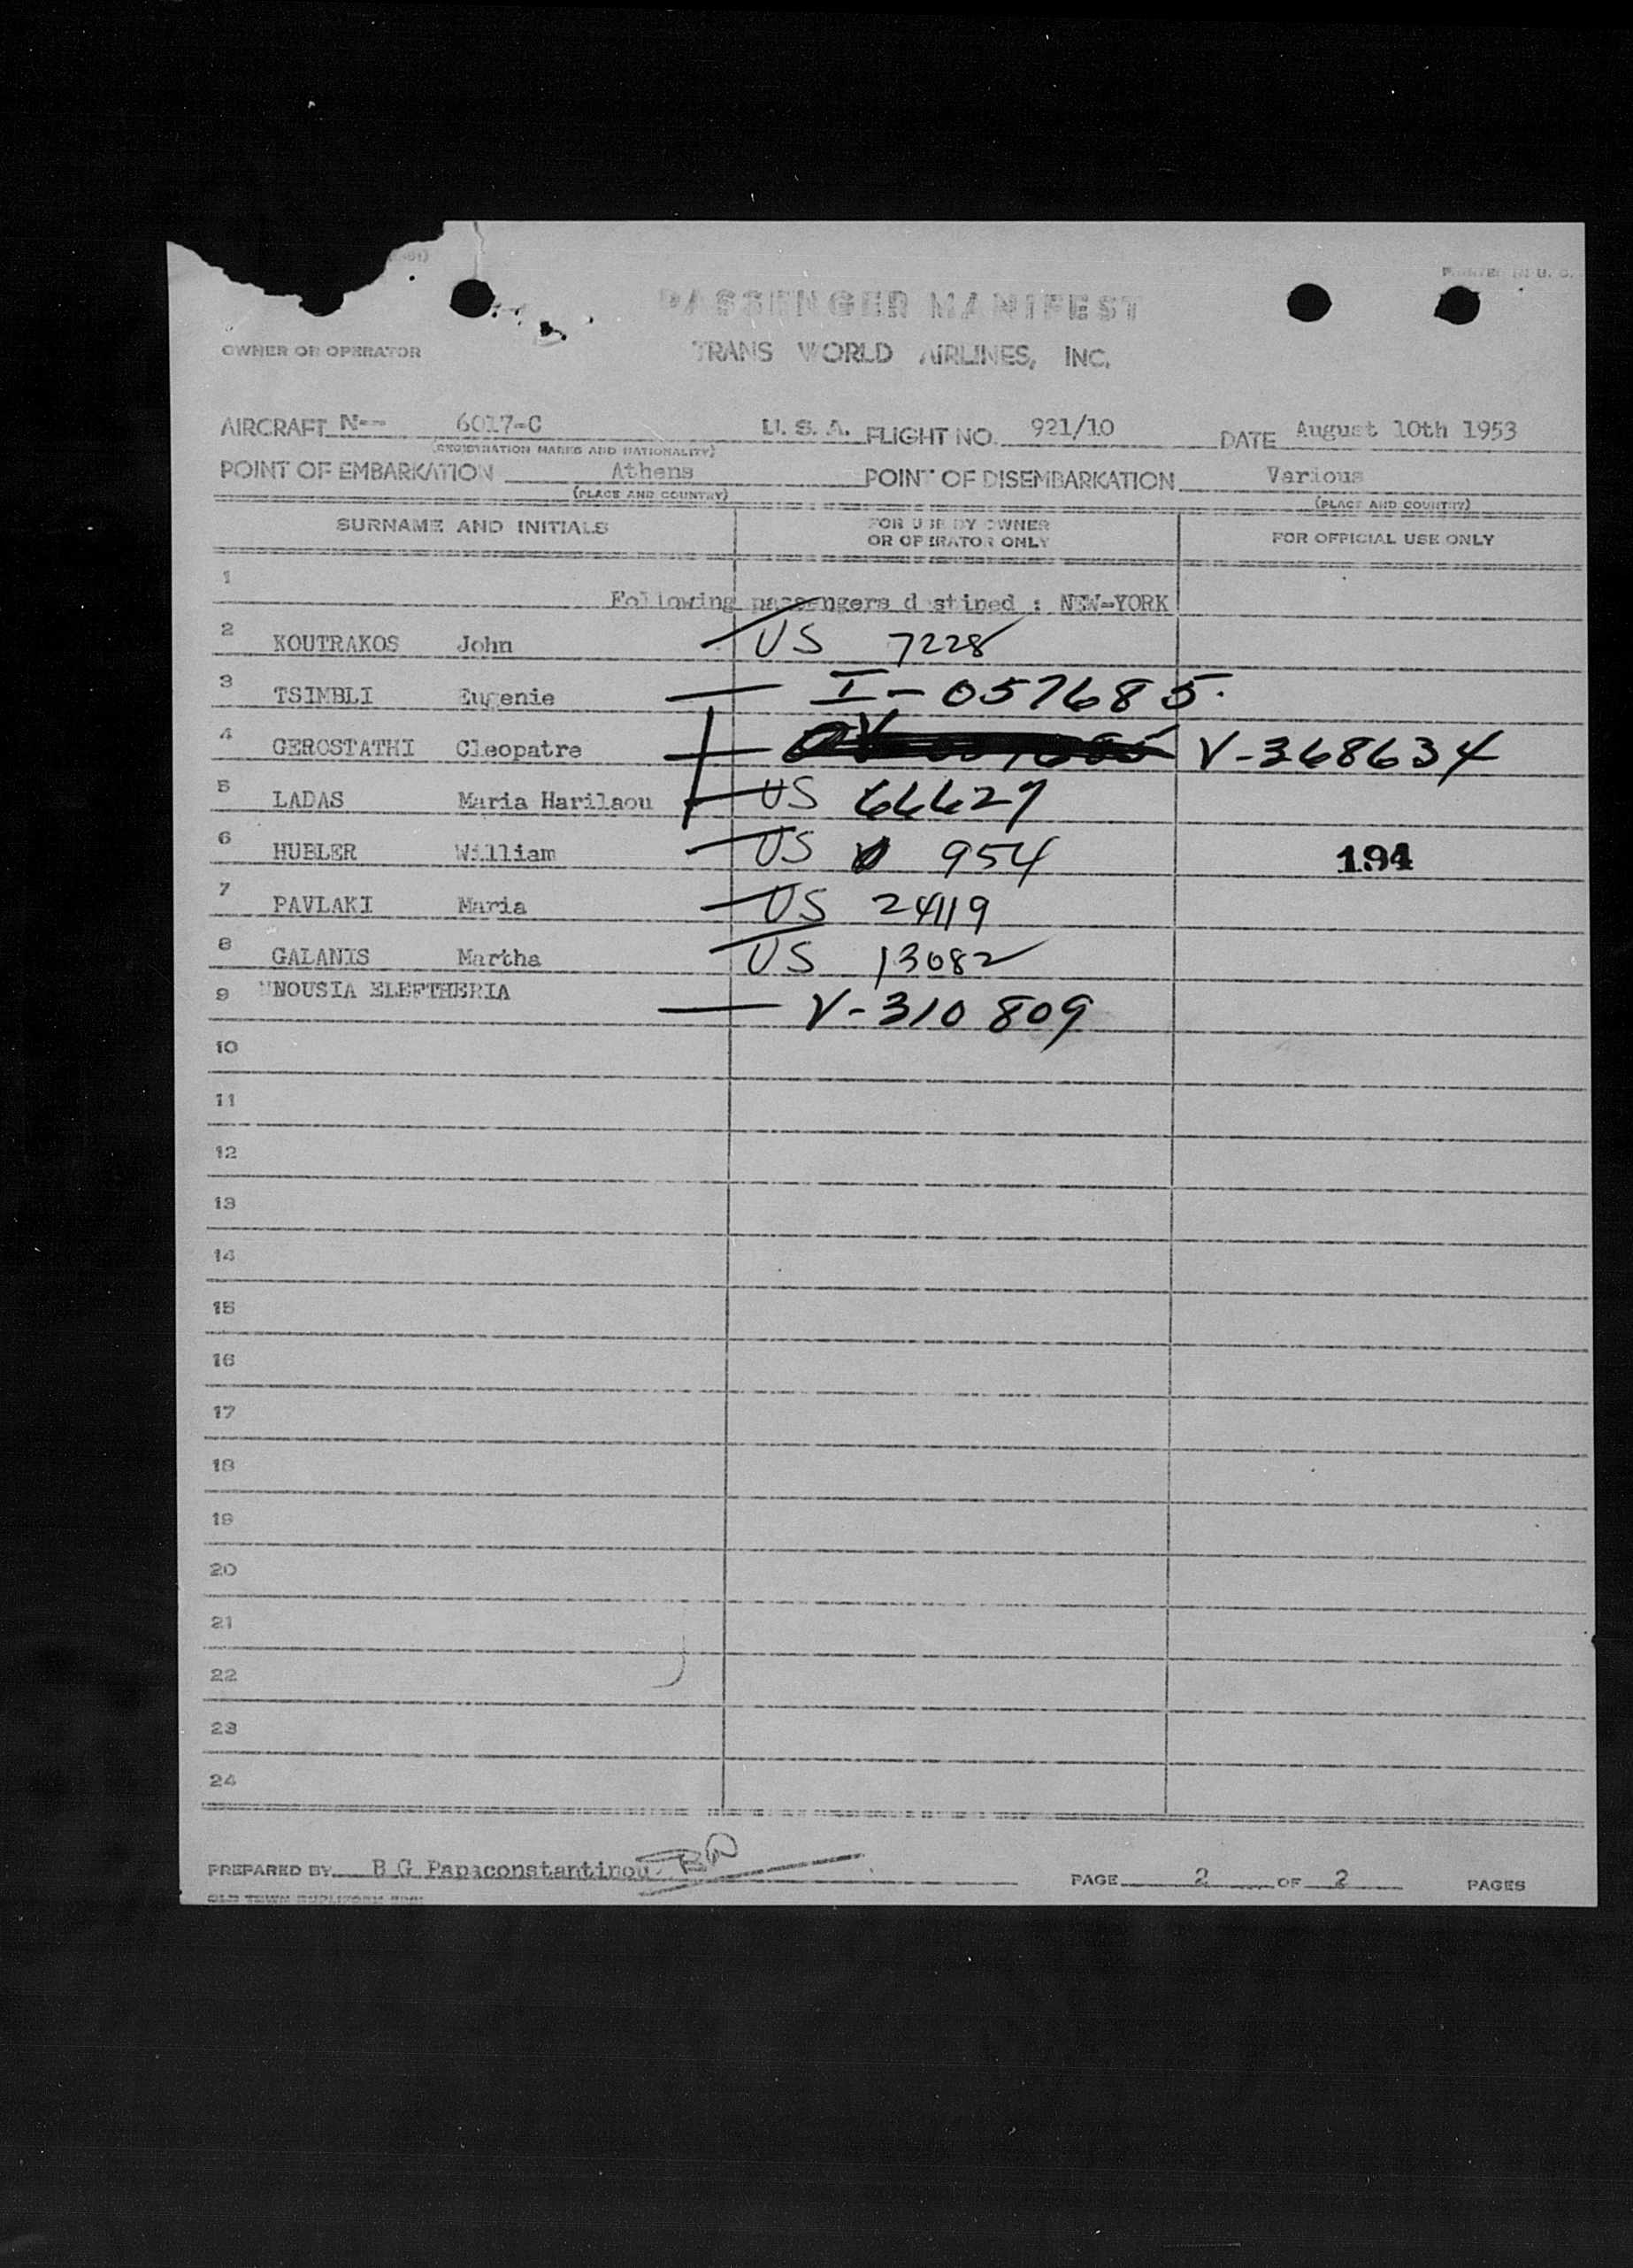 PRINTED IN U. S.
PASSENGER MANIFEST
OWNER OR OPERATOR TRANS WORLD AIRLINES, INC.
AIRCRAFT N-- 6017-C U. S. A. FLIGHT NO. 921/10 DATE August 10th 1953
(REGISTRATION MARKS AND NATIONALITY)
POINT OF EMBARKATION Athens POINT OF DISEMBARKATION Various
(PLACE AND COUNTRY) (PLACE AND COUNTRY)
SURNAME AND INITIALS FOR USE BY OWNER OR OPERATOR ONLY FOR OFFICIAL USE ONLY
1 Following passengers destined : NEW-YORK
2 KOUTRAKOS John US 7228
3 TSIMBLI Eugenie I-057685
4 GEROSTATHI Cleopatre V-368634
5 LADAS Maria Harilaou US 66627
6 HUBLER William US 954 194
7 PAVLAKI Maria US 24119
8 GALANIS Martha US 13082
9 NOUSIA ELEFTHERIA V-310809
10
11
12
13
14
15
16
17
18
19
20
21
22
23
24
PREPARED BY B G Papaconstantinou PAGE 2 OF 2 PAGES
OLD TOWN